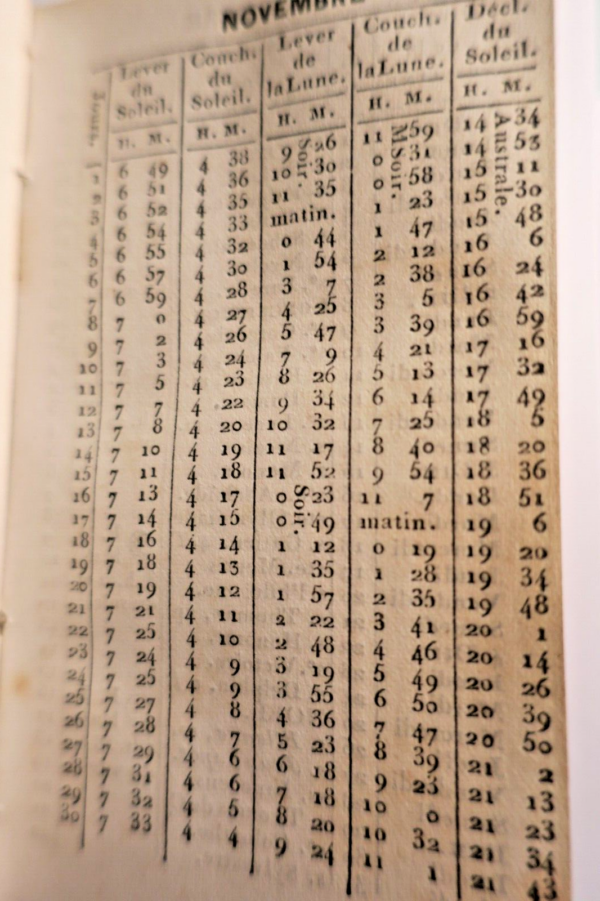 NOVEMBRE
Jours. Lever du Soleil. Couch. du Soleil. Lever de la Lune. Couch. de la Lune. Décl. du Soleil.
H. M. H. M. H. M. H. M. H. M.
1 6 49 4 38 9 Soir. 26 11 M 59 14 Australe. 34
2 6 51 4 36 10 30 0 Soir. 31 14 53
3 6 52 4 35 11 35 0 58 15 11
4 6 54 4 33 matin. 1 23 15 30
5 6 55 4 32 0 44 1 47 15 48
6 6 57 4 30 1 54 2 12 16 6
7 6 59 4 28 3 7 2 38 16 24
8 7 0 4 27 4 25 3 5 16 42
9 7 2 4 26 5 47 3 39 16 59
10 7 3 4 24 7 9 4 21 17 16
11 7 5 4 23 8 26 5 13 17 32
12 7 7 4 22 9 34 6 14 17 49
13 7 8 4 20 10 32 7 25 18 5
14 7 10 4 19 11 17 8 40 18 20
15 7 11 4 18 11 52 9 54 18 36
16 7 13 4 17 0 Soir. 23 11 7 18 51
17 7 14 4 15 0 49 matin. 19 6
18 7 16 4 14 1 12 0 19 19 20
19 7 18 4 13 1 35 1 28 19 34
20 7 19 4 12 1 57 2 35 19 48
21 7 21 4 11 2 22 3 41 20 1
22 7 25 4 10 2 48 4 46 20 14
23 7 24 4 9 3 19 5 49 20 26
24 7 25 4 9 3 55 6 50 20 39
25 7 27 4 8 4 36 7 47 20 50
26 7 28 4 7 5 23 8 39 21 2
27 7 29 4 6 6 18 9 23 21 13
28 7 31 4 6 7 18 10 0 21 23
29 7 32 4 5 8 20 10 32 21 34
30 7 33 4 4 9 24 11 1 21 43